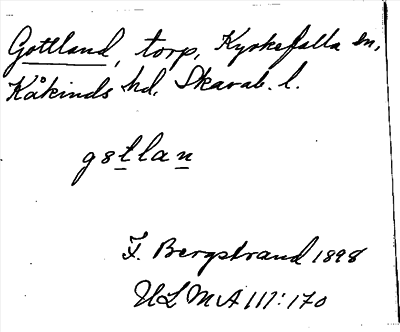 Gottland, torp, Kyrkefalla sn,
Kåkinds hd, Skarab. l.
gɜtlan
F. Bergstrand 1898
ULMA 111:170